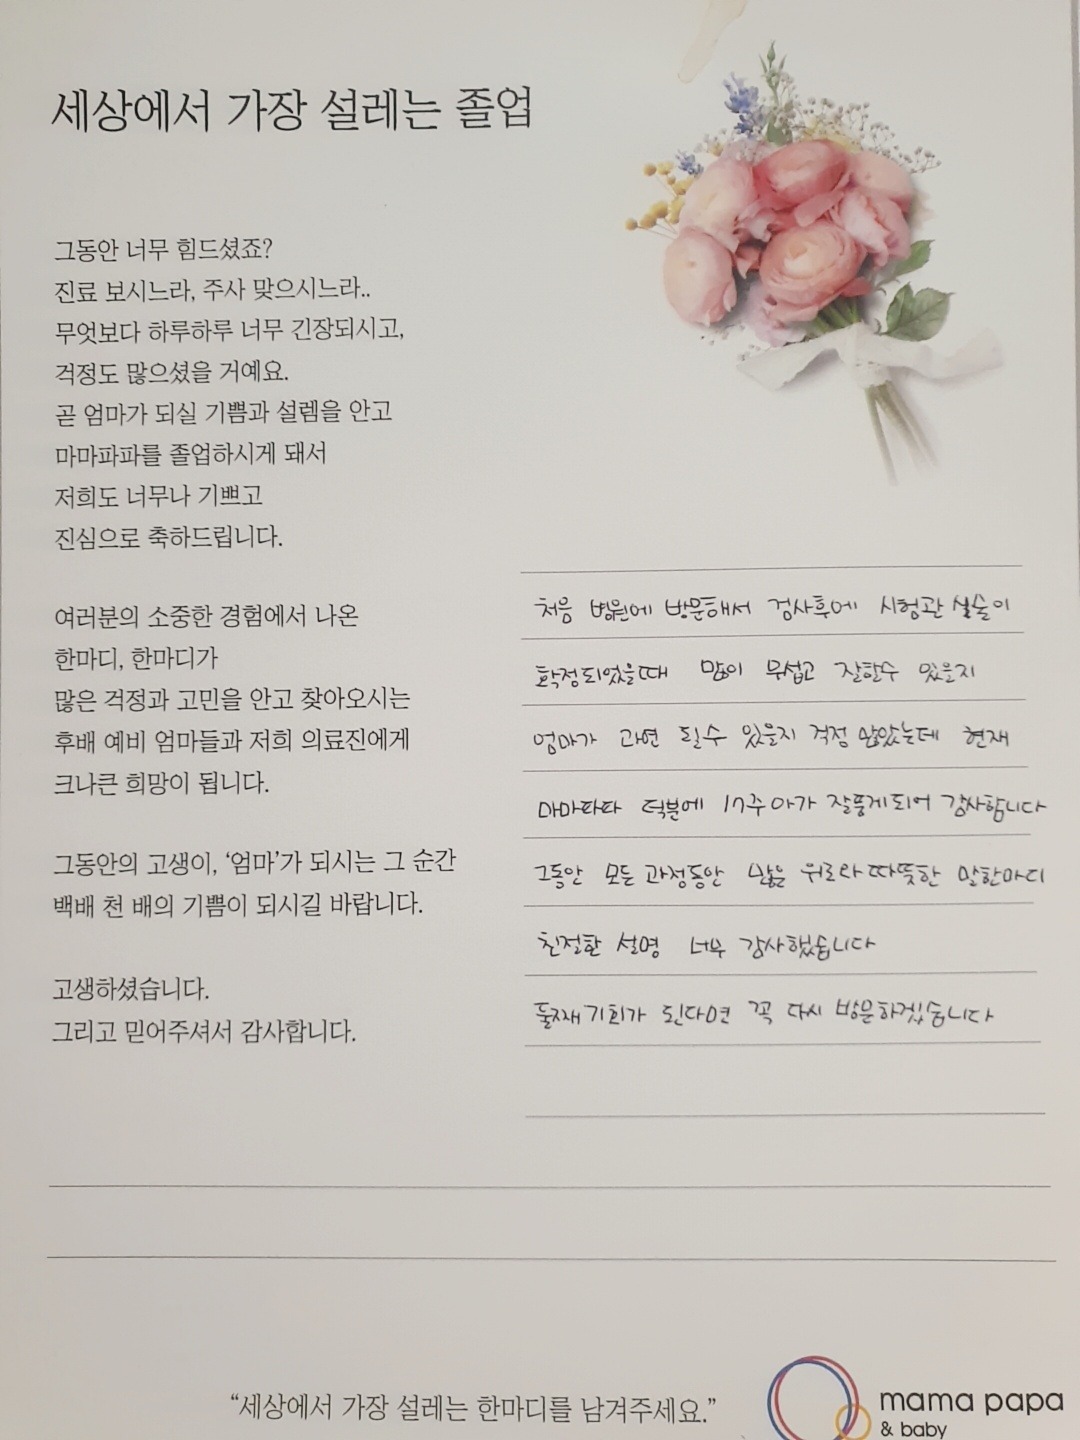 세상에서 가장 설레는 졸업
그동안 너무 힘드셨죠?
진료 보시느라, 주사 맞으시느라..
무엇보다 하루하루 너무 긴장되시고,
걱정도 많으셨을 거예요.
곧 엄마가 되실 기쁨과 설렘을 안고
마마파파를 졸업하시게 돼서
저희도 너무나 기쁘고
진심으로 축하드립니다.
여러분의 소중한 경험에서 나온
한마디, 한마디가
많은 걱정과 고민을 안고 찾아오시는
후배 예비 엄마들과 저희 의료진에게
크나큰 희망이 됩니다.
그동안의 고생이, '엄마'가 되시는 그 순간
백배 천 배의 기쁨이 되시길 바랍니다.
고생하셨습니다.
그리고 믿어주셔서 감사합니다.
처음 병원에 방문해서 검사후에 시험관 실술이
확정되었을때 많이 무섭고 잘할수 있을지
엄마가 과연 될수 있을지 걱정 많았는데 현재
마마파파 덕분에 17주 아가 잘품게되어 감사합니다
그동안 모든 과정동안 많은 위로와 따뜻한 말한마디
친절한 설명 너무 감사했습니다
둘째기회가 된다면 꼭 다시 방문하겠습니다
"세상에서 가장 설레는 한마디를 남겨주세요."
mama papa
& baby